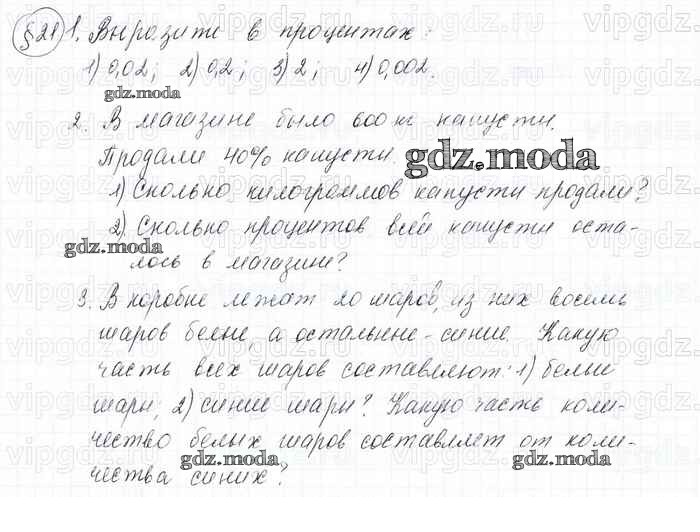 §21 1. Выразите в процентах:
1) 0,02; 2) 0,2; 3) 2; 4) 0,002.
gdz.moda
2. В магазине было 600 кг капусты.
Продали 40% капусты.
gdz.moda
1) Сколько килограммов капусты продали?
2) Сколько процентов всей капусты оста-
gdz.moda
лось в магазине?
3. В коробке лежат 20 шаров, из них восемь
шаров белые, а остальные - синие. Какую
часть всех шаров составляют: 1) белые
шары; 2) синие шары? Какую часть коли-
чество белых шаров составляет от коли-
gdz.moda gdz.moda
чества синих?